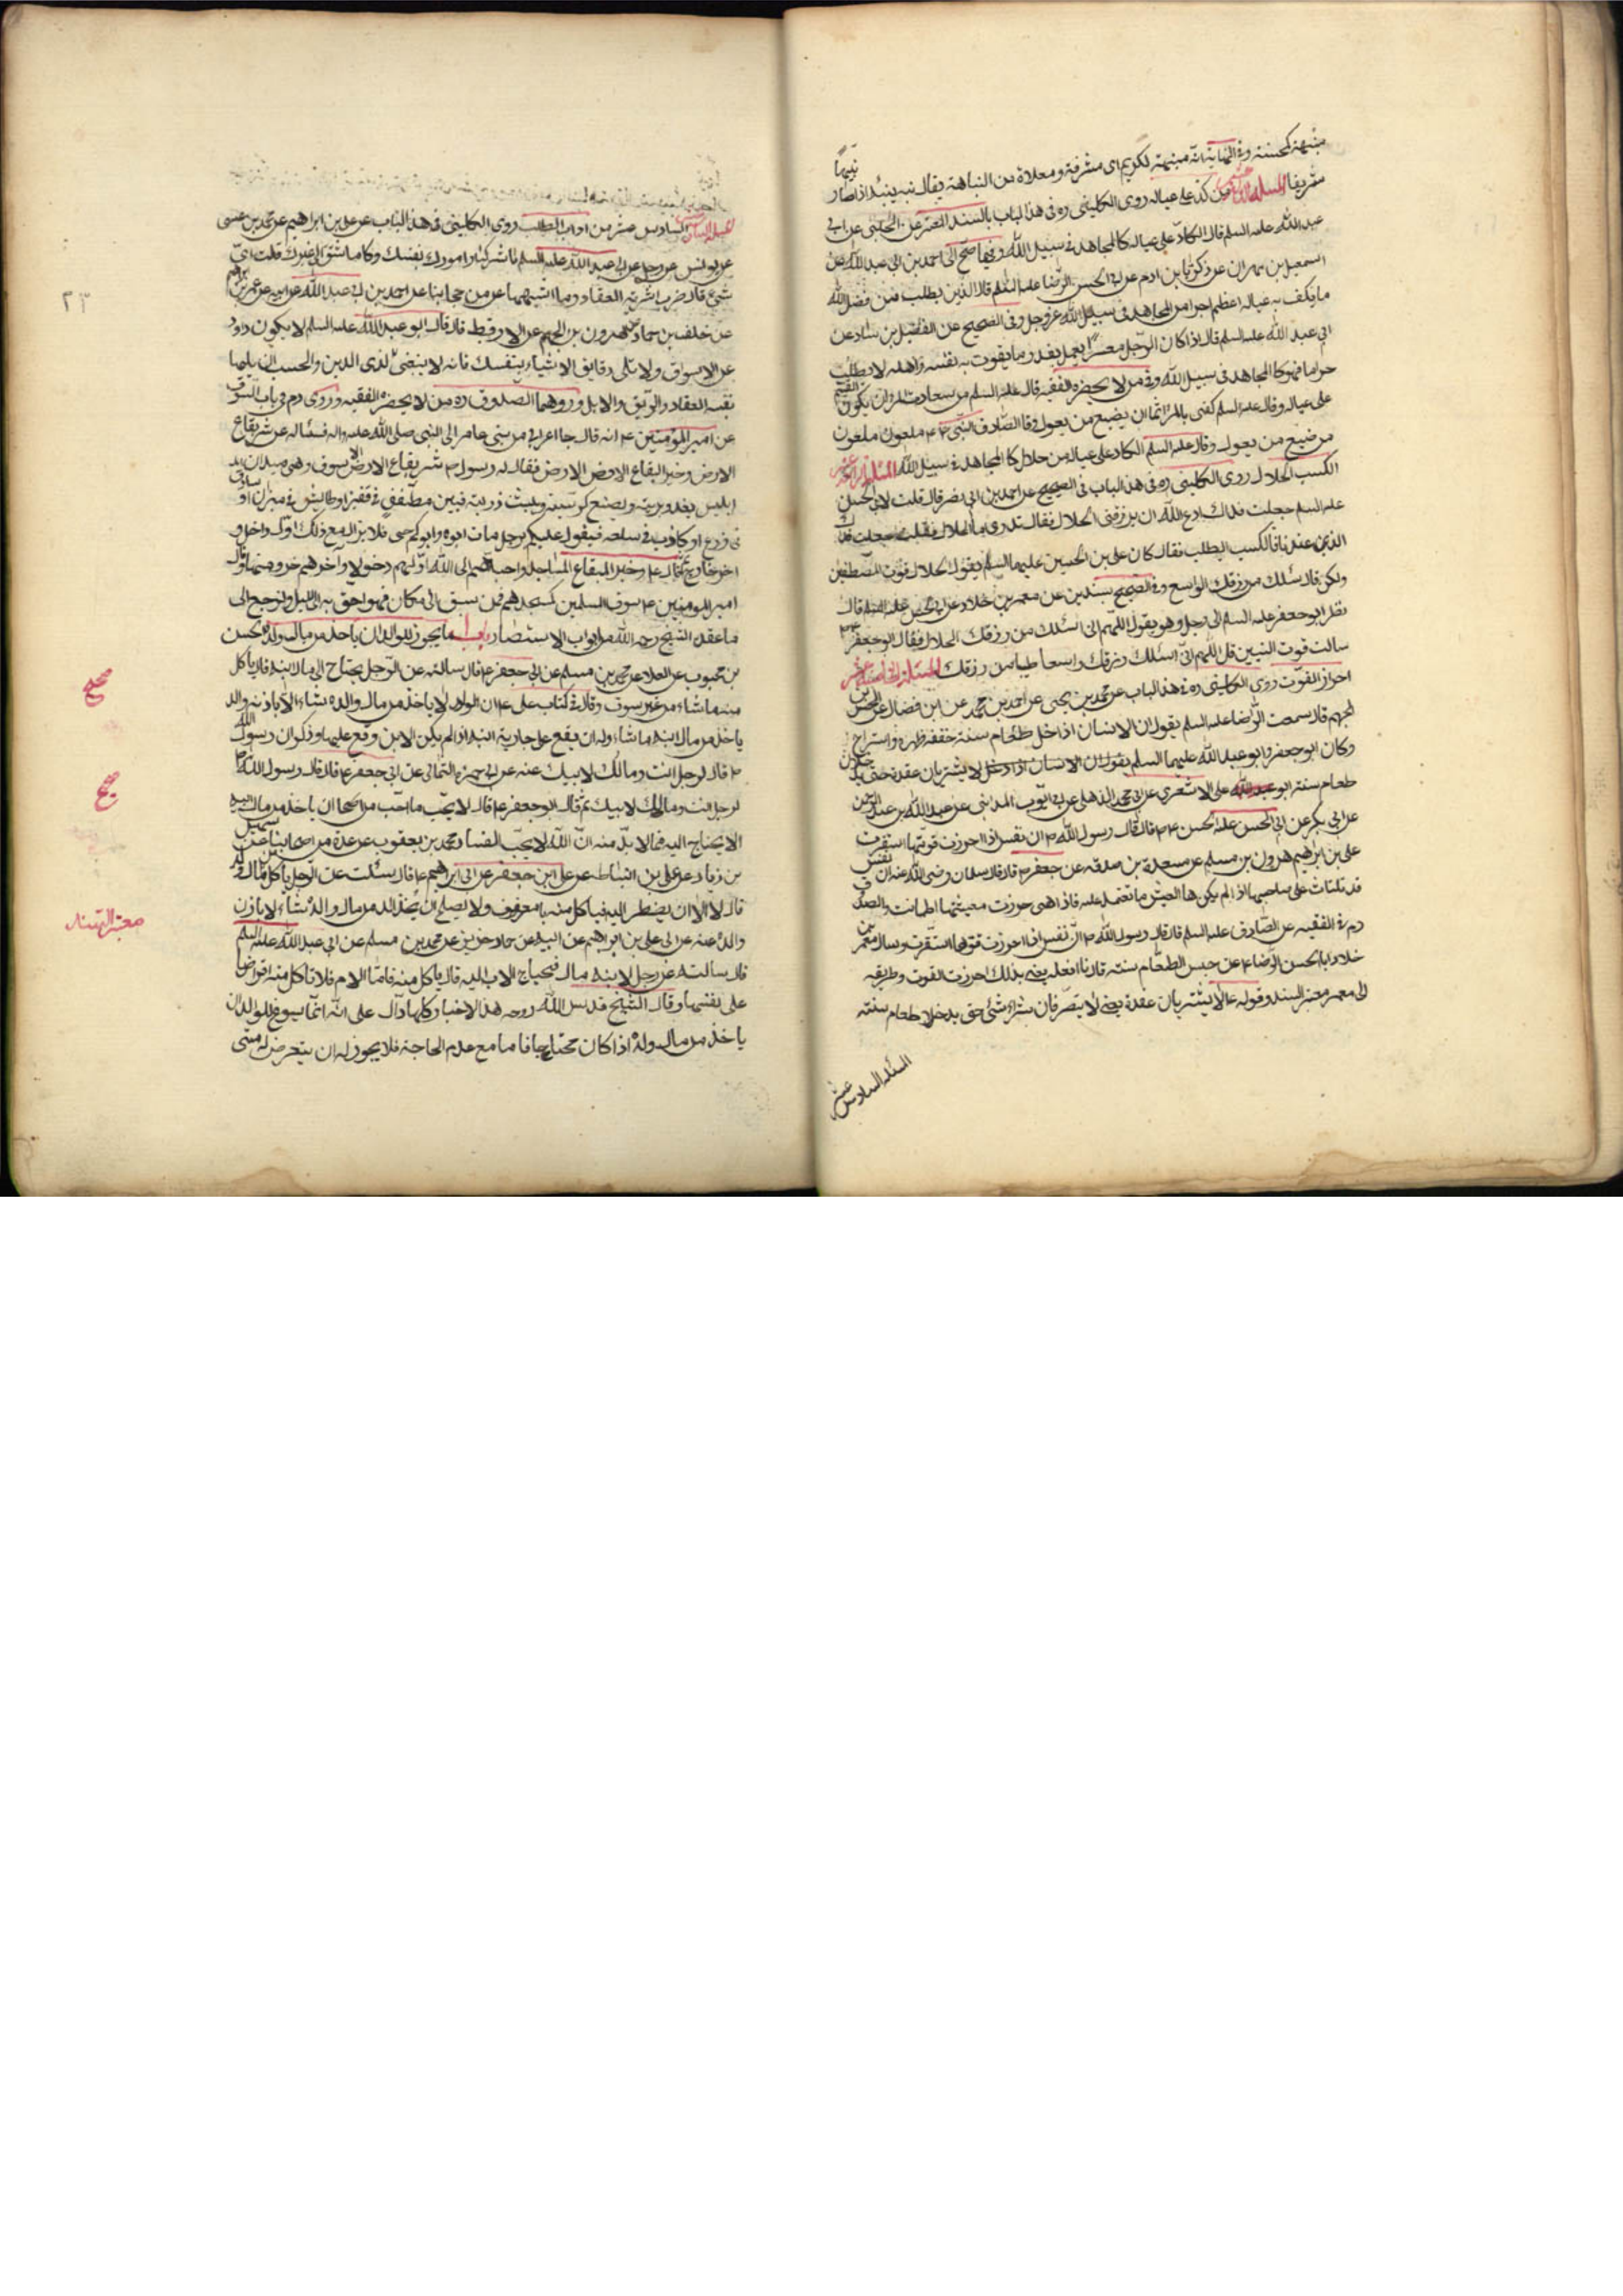 منبهة كمحسنة وفى النهاية انه منبهة لكريم اى مشرفة ومعلاة من النباهة يقال نبه ينبه اذا صار نبيها
شريفا المسئلة الثالثة عشر من كد على عياله روى الكلينى ره فى هذا الباب بالسند المعتبر عن الحلبى عن ابى
عبد الله عليه السلم قال الكاد على عياله كالمجاهد فى سبيل الله وفيها صح الى احمد بن ابى عبد الله عن
اسمعيل بن مهران عن زكريا بن ادم عن ابى الحسن الرضا عليه السلم قال الذى يطلب من فضل الله
ما يكف به عياله اعظم اجرا من المجاهد فى سبيل الله عز وجل وفى الصحيح عن الفضيل بن يسار عن
ابى عبد الله عليه السلم قال اذا كان الرجل معسرا يعمل بقدر ما يقوت به نفسه واهله لا يطلب
حراما فهو كالمجاهد فى سبيل الله وفى من لا يحضره الفقيه قال عليه السلم من سعادة المرء ان يكون القيم
على عياله وقال عليه السلم كفى بالمرء اثما ان يضيع من يعول وقا الصادق النبى ص ملعون ملعون
من ضيع من يعول وقال عليه السلم الكاد على عياله من حلال كالمجاهد فى سبيل الله المسئلة الرابعة عشر
الكسب الحلال روى الكلينى ره فى هذا الباب فى الصحيح عن احمد بن ابى نصر قال قلت لابى الحسن
عليه السلم جعلت فداك ادع الله ان يرزقنى الحلال فقال تدرى ما الحلال فقلت جعلت فداك
الذى عندنا فالكسب الطيب فقال كان على بن الحسين عليهما السلم يقول الحلال قوت المصطفين
ولكن قال سئلك من رزقك الواسع وفى الصحيح بسندين عن معمر بن خلاد عن ابى الحسن عليه السلم قال
نظر ابو جعفر عليه السلم الى رجل وهو يقول اللهم انى اسئلك من رزقك الحلال فقال ابو جعفر ع
سالت قوت النبيين قل اللهم انى اسئلك رزقك واسعا طيبا من رزقك المسئلة الخامسة عشر
احراز القوت روى الكلينى ره فى هذا الباب عن محمد بن يحيى عن احمد بن محمد عن ابن فضال عن الحسن بن
الجهم قال سمعت الرضا عليه السلم يقول ان الانسان اذا دخل طعام سنة خفف ظهره واستراح
وكان ابو جعفر وابو عبد الله عليهما السلم يقولان ان الانسان اذا دخل لا يشتريان عقدة حتى يدخلان
طعام سنة ابو عبد الله على الاشعرى عن ابى محمد الذهلى عن ابى ايوب المدائنى عن عبد الله بن عبد الرحمن
عن ابى بكر عن ابى الحسن عليه الحسن ع قال قال رسول الله ص ان نفس اذا احرزت قوتها استقرت
على بن ابراهيم هرون بن مسلم عن مسعدة بن صدقه عن جعفر ع قال قال سلمان رضى الله عنه ان نفس
قد تلتاث على صاحبها اذا لم يكن لها العيش ما تعتمد عليه فاذا هى حرزت معيشتها اطمانت والصدوق
ره فى الفقيه عن الصادق عليه السلم قال قال رسول الله ص ان نفس اذا احرزت قوتها استقرت وسال معمر بن
خلاد ابا الحسن الرضا ع عن حبس الطعام سنة قال انا افعله يعنى بذلك احرزت القوت وطريقه
الى معمر معتبر السند وقوله ع لا يشتريان عقدة يعنى لا يتصرفان بشراء شئ حتى يدخلا طعام سنة
المسئلة السادس عشر
٢٣
المسئلة السادس عشر من اداب الطلب روى الكلينى فى هذا الباب عن على بن ابراهيم عن محمد بن عيسى
عن يونس عن رجل عن ابى عبد الله عليه السلم باشر كبار امورك بنفسك وكل ما شق الى غيرك قلت اى
شئ قال ضرب اشرية العقاد وما اشبهها عن من حجابنا عن احمد بن ابى عبد الله عن ابيه عن عمر بن ابرهيم
عن خلف بن حماد هرون بن الجهم عن الارقط قال قال ابو عبد الله عليه السلم لا يكون دوار
عن الاسواق ولا تلى دقايق الاشياء بنفسك فانه لا ينبغى لذى الدين والحسب ان يليها
نفسه العقاد والرقيق والابل ورويهما الصدوق ره من لا يحضره الفقيه وروى ره فى باب السوق
عن امير المؤمنين ع انه قال جا اعرابى من بنى عامر الى النبى صلى الله عليه واله فسأله عن شر بقاع
الارض وخير البقاع الارض فقال له رسول ص شر بقاع الارض الاسوق وهى ميدان
ابليس يغدو برايته ويصنع كرسيه ويبث ذريته فبين مطفف فى قفيز او طايش فى ميزان او سارق
فى زرع او كاذب فى سلعة فيقول عليكم برجل مات ابوه وابوكم حى فلا يزال مع ذلك اول داخل و
اخر خارج ثم قال ع وخير البقاع المساجد واحبهم الى الله اولهم دخولا وآخرهم خروجا منها وقال
امير المومنين ع سوق المسلمين كمسجدهم فمن سبق الى مكان فهو احق به الى الليل ولنرجع الى
ما عقده الشيخ رحمه الله من ابواب الاستبصار باب ما يجوز للوالد ان ياخذ من مال ولده الحسن
بن محبوب عن العلا عن محمد بن مسلم عن ابى جعفر ع قال سالته عن الرجل يحتاج الى مال ابنه قال ياكل
منه ما شاء من غير سرف وقال فى كتاب على ع ان الولد لا ياخذ من مال والده شاء الا باذنه والد
ياخذ من مال ابنه ما شاء وله ان يقع على جارية ابنه اذا لم يكن الابن وقع عليها وذكر ان رسول الله
ص قال لرجل انت ومالك لابيك عنه عن ابى حمزة الثمالى عن ابى جعفر ع قال قال رسول الله ص
لرجل انت ومالك لابيك ثم قال ابو جعفر ع قال لا يحب ما احب من اصحابنا ان ياخذ من مال ابنه
الا يحتاج اليه مما لا بد منه ان الله لا يحب الفساد محمد بن يعقوب عن عدة من اصحابنا عن سهيل
بن زياد عن على بن اسباط عن على بن جعفر عن ابى ابرهيم ع قال سئلت عن الرجل ياكل من مال ولده
قال لا الا ان يضطر اليه فياكل منه بالمعروف ولا يصلح ان ياخذ الولد من مال والده شاء لا باذن
والده عنه عن ابى على بن ابراهيم عن ابيه عن حماد حريز عن محمد بن مسلم عن ابى عبد الله عليه السلم
قال سالته عن رجل لابنه مال فيحتاج الاب اليه قال ياكل منه فاما الام فلا تاكل منه الا قرضا
على نفسها وقال الشيخ قدس الله روحه هذه الاخبار كلها دال على انه انما يسوغ للوالد ان
ياخذ من مال ولده اذا كان محتاجا فاما مع عدم الحاجة فلا يجوز له ان يتعرض له متى
صحيح
صحيح
معتبر السند